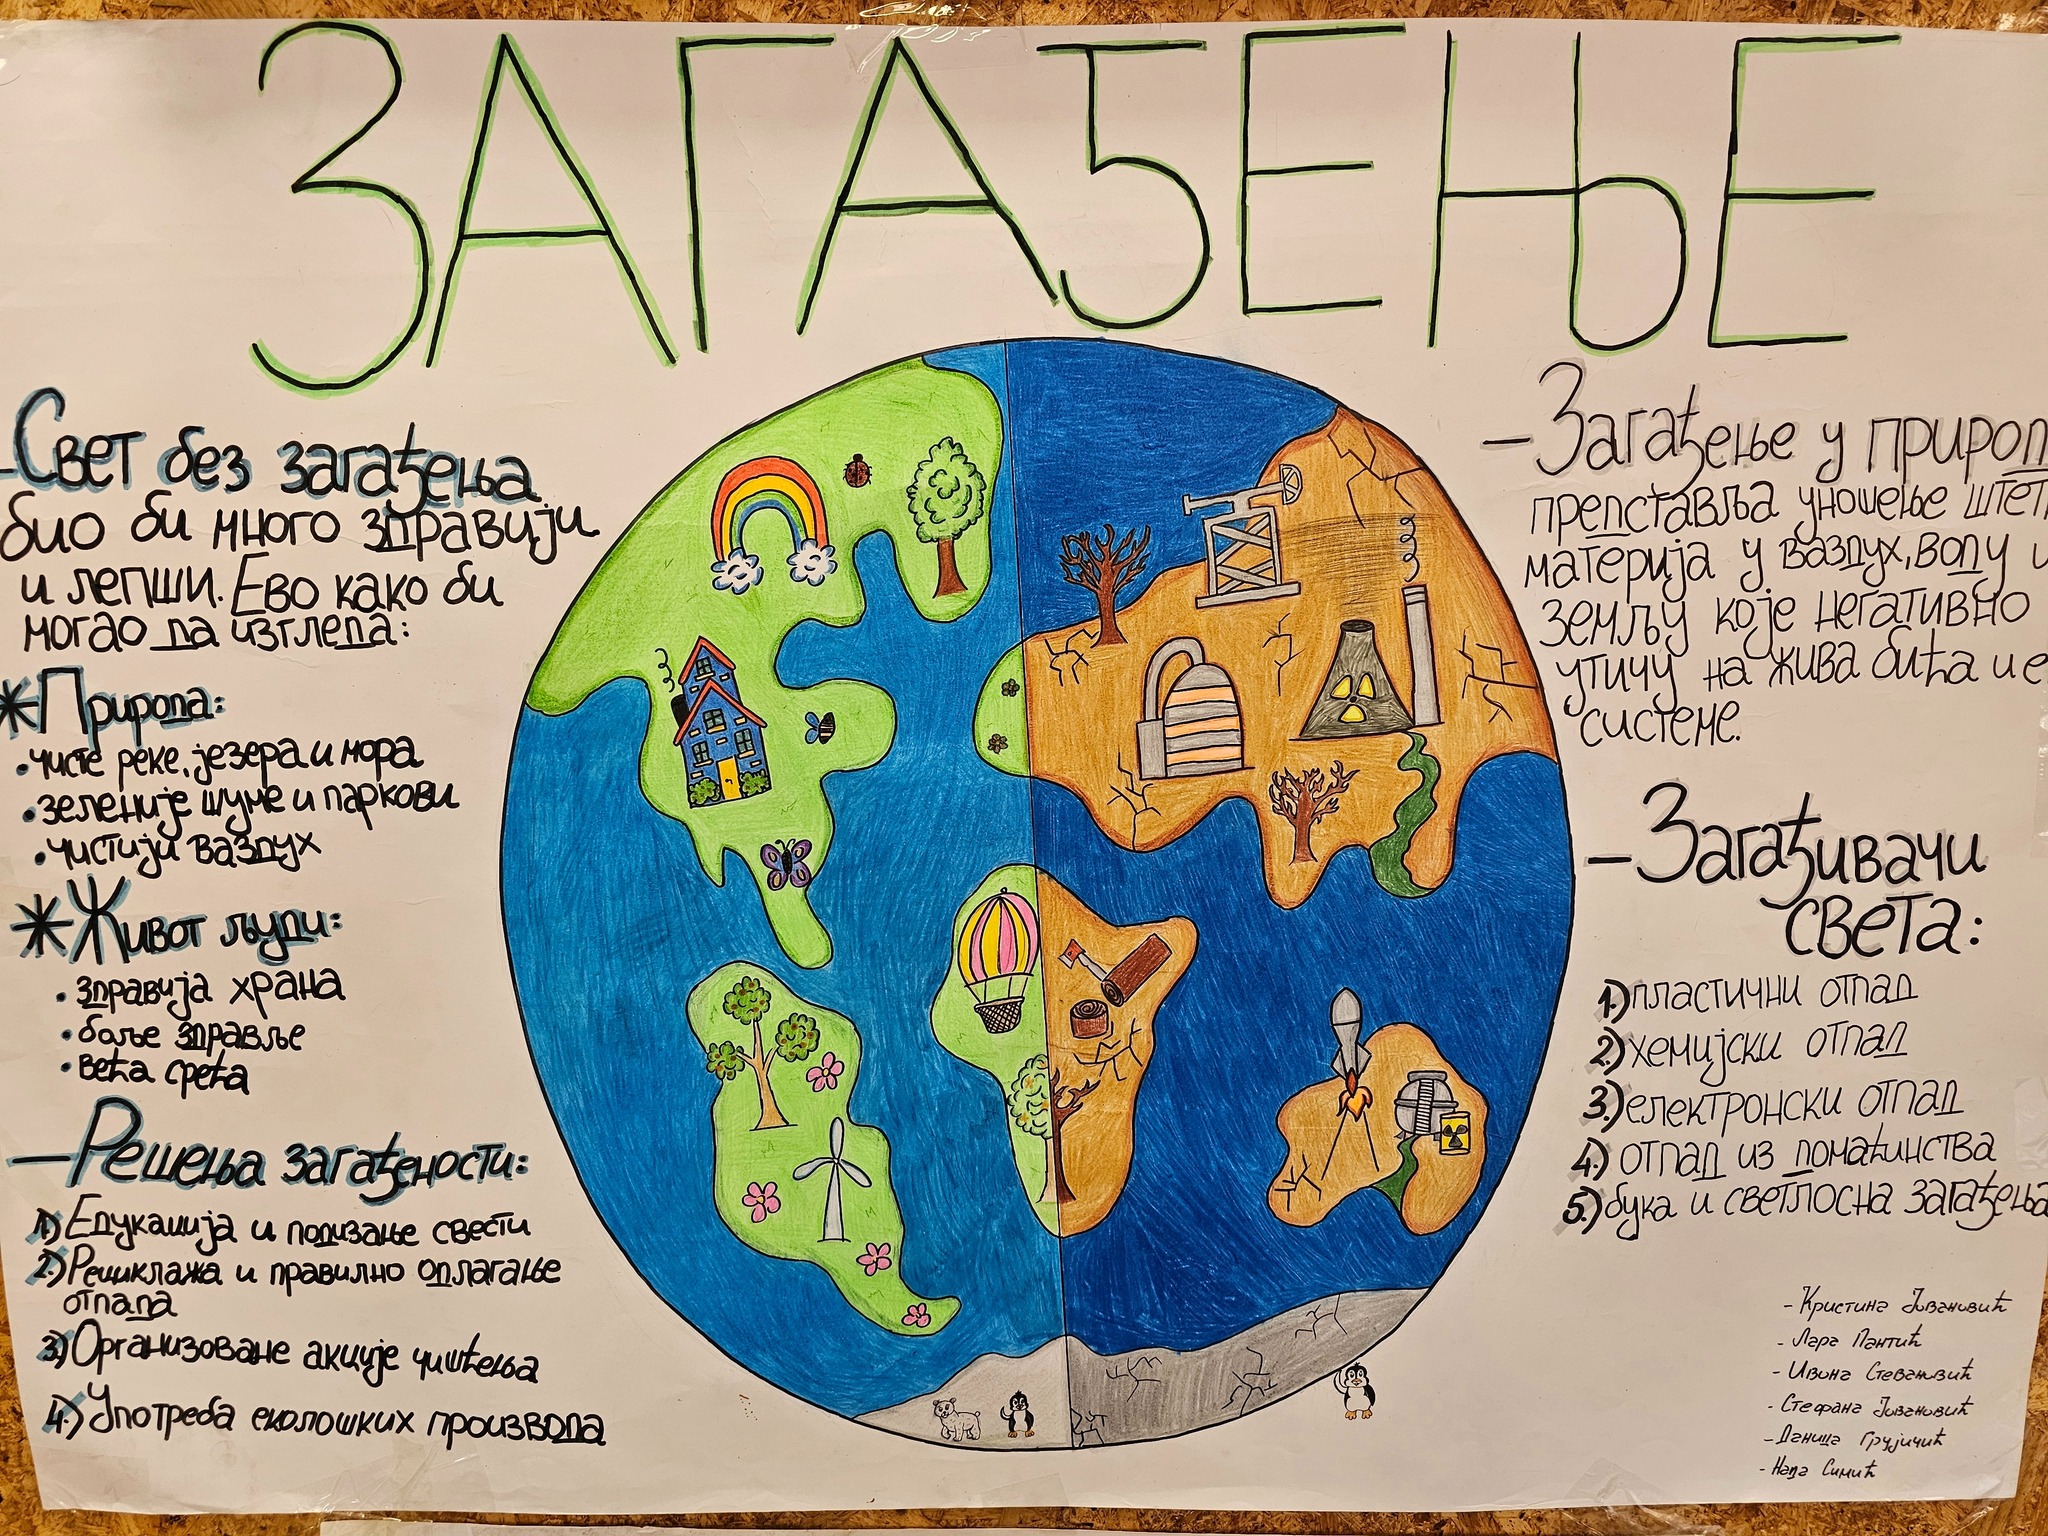 ЗАГАЂЕЊЕ
-Свет без загађења
био би много здравији
и лепши. Ево како би
могао да изгледа:
*Природа:
•чисте реке, језера и мора
•зеленије шуме и паркови
•чистији ваздух
*Живот људи:
•здравија храна
•боље здравље
•већа срећа
-Решења загађености:
1.)Едукација и подизање свести
2.)Рециклажа и правилно одлагање
отпада
3.)Организоване акције чишћења
4.)Употреба еколошких производа
-Загађење у природ
представља уношење штет
материја у ваздух, воду и
земљу које негативно
утичу на жива бића и е
системе.
-Загађивачи
света:
1.)пластични отпад
2.)хемијски отпад
3.)електронски отпад
4.)отпад из домаћинства
5.)бука и светлосна загађења
-Кристина Јовановић
-Лара Пантић
-Ивона Стевановић
-Стефана Јовановић
-Даница Грујичић
-Нађа Симић